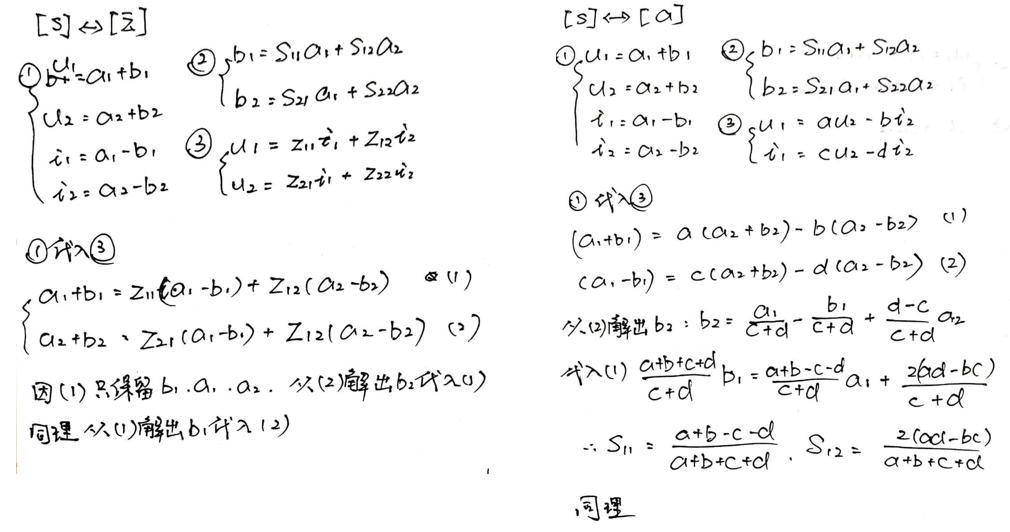 [S]↔[z̄]
① u₁=a₁+b₁
u₂=a₂+b₂
i₁=a₁-b₁
i₂=a₂-b₂
② b₁=S₁₁a₁+S₁₂a₂
b₂=S₂₁a₁+S₂₂a₂
③ u₁=z₁₁i₁+z₁₂i₂
u₂=z₂₁i₁+z₂₂i₂
①代入③
a₁+b₁=z₁₁(a₁-b₁)+z₁₂(a₂-b₂) (1)
a₂+b₂=z₂₁(a₁-b₁)+z₁₂(a₂-b₂) (2)
因(1)只保留b₁.a₁.a₂. 从(2)解出b₂代入(1)
同理 从(1)解出b₁代入(2)
[S]↔[a]
① u₁=a₁+b₁
u₂=a₂+b₂
i₁=a₁-b₁
i₂=a₂-b₂
② b₁=S₁₁a₁+S₁₂a₂
b₂=S₂₁a₁+S₂₂a₂
③ u₁=au₂-bi₂
i₁=cu₂-di₂
①代入③
(a₁+b₁)=a(a₂+b₂)-b(a₂-b₂) (1)
(a₁-b₁)=c(a₂+b₂)-d(a₂-b₂) (2)
从(2)解出b₂: b₂=a₁/(c+d)-b₁/(c+d)+(d-c)/(c+d)a₂
代入(1) (a+b+c+d)/(c+d)b₁=(a+b-c-d)/(c+d)a₁+2(ad-bc)/(c+d)
∴S₁₁=(a+b-c-d)/(a+b+c+d). S₁₂=2(ad-bc)/(a+b+c+d)
同理